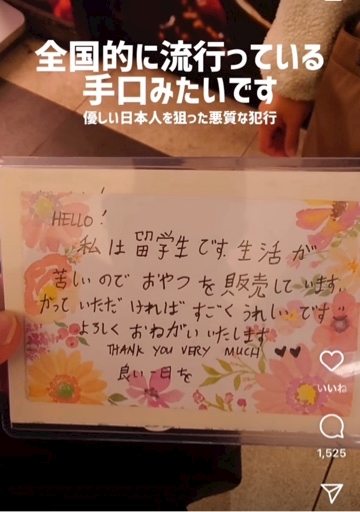 全国的に流行っている
手口みたいです
優しい日本人を狙った悪質な犯行
HELLO!
私は留学生です.生活が
苦しいので おやつを販売しています.
かって いただ ければ すごく うれしい です
よろしく おねがい いたします
THANK YOU VERY MUCH ♥♥
良い一日を
いいね
1,525